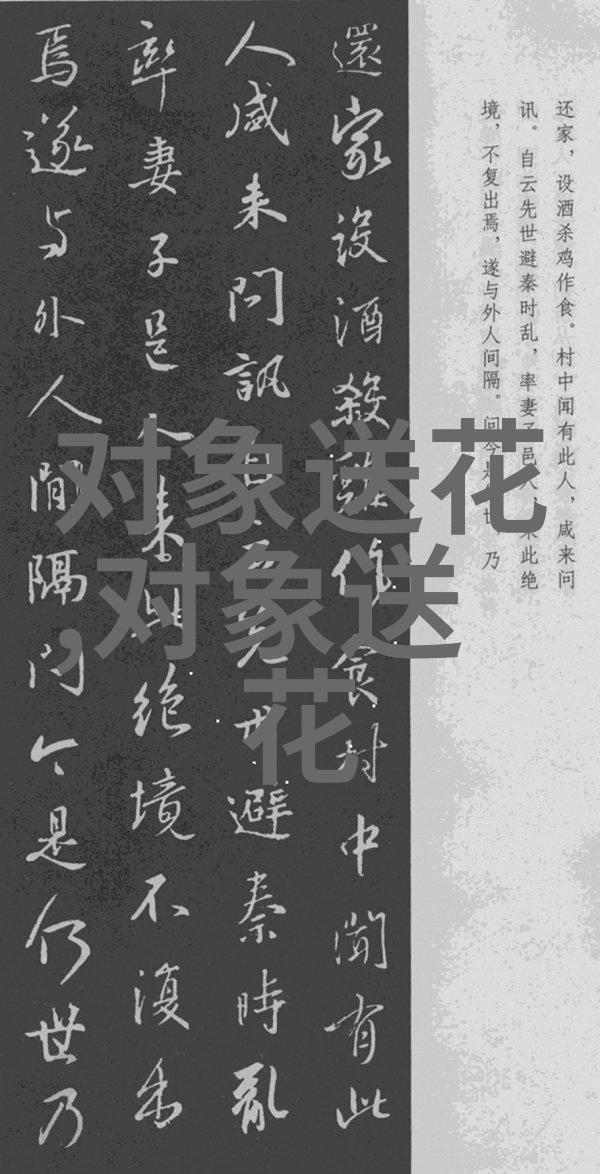 还家，设酒杀鸡作食。村中闻有此人，咸来问
讯。自云先世避秦时乱，率妻子邑人，来此绝
境，不复出焉，遂与外人间隔。问今是世 乃
還家設酒殺雞作食村中聞有此
人咸来問訊自云先世避秦時亂
率妻子邑人来此絶境不復出
焉遂与外人間隔問今是何世乃
对象送花
,对象送
花